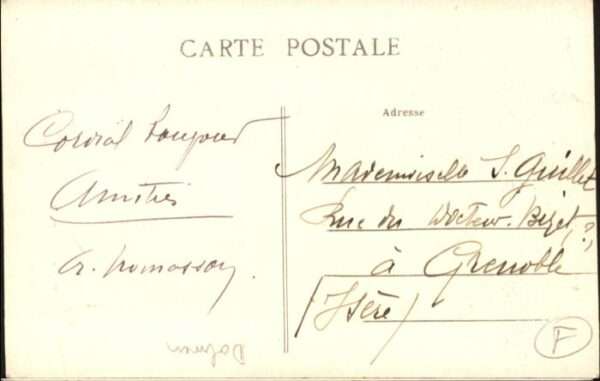 CARTE POSTALE
Adresse
Cordial bonjour
Amitiés
Mademoiselle S. Guillet
Rue du Docteur. Bizet, ?,
à Grenoble
(Isère)
F